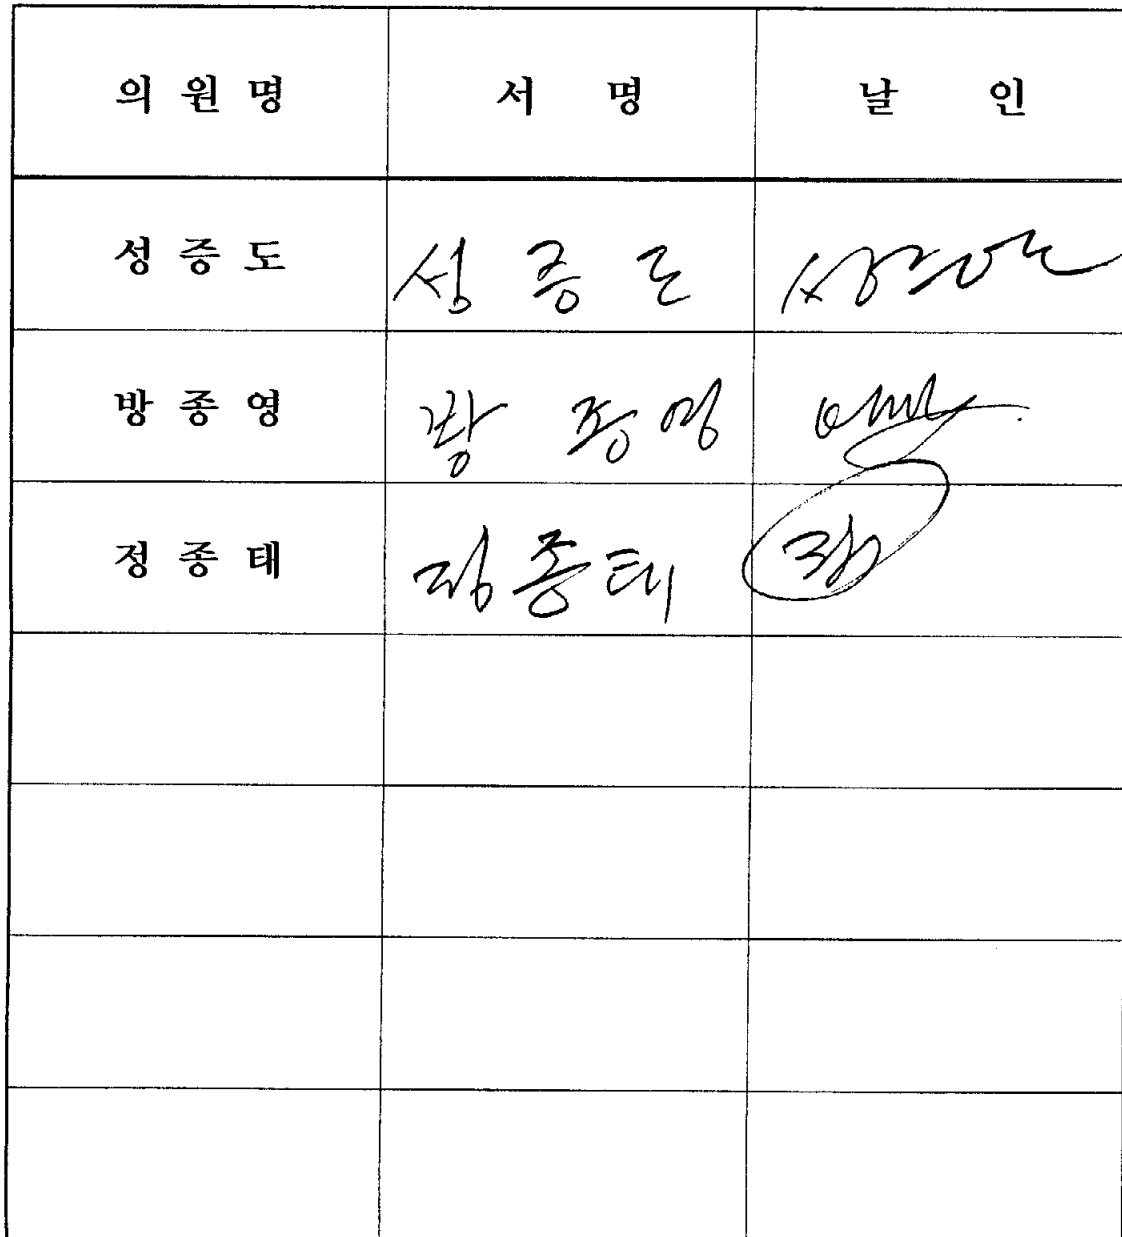 의 원 명 서 명 날 인
성 증 도 성 증 도
방 종 영 방 종 영
정 종 태 정종태 정